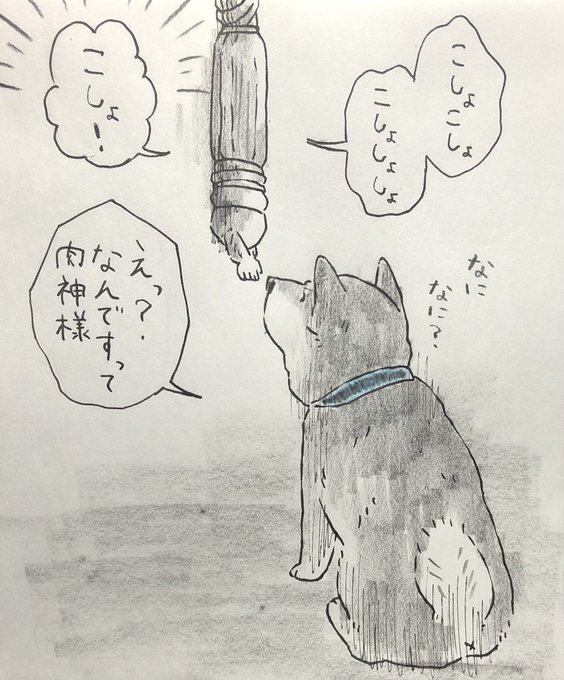 こしょこしょ
こしょしょしょ
なに
なに?
こしょ!
えっ?
なんですって
肉神様